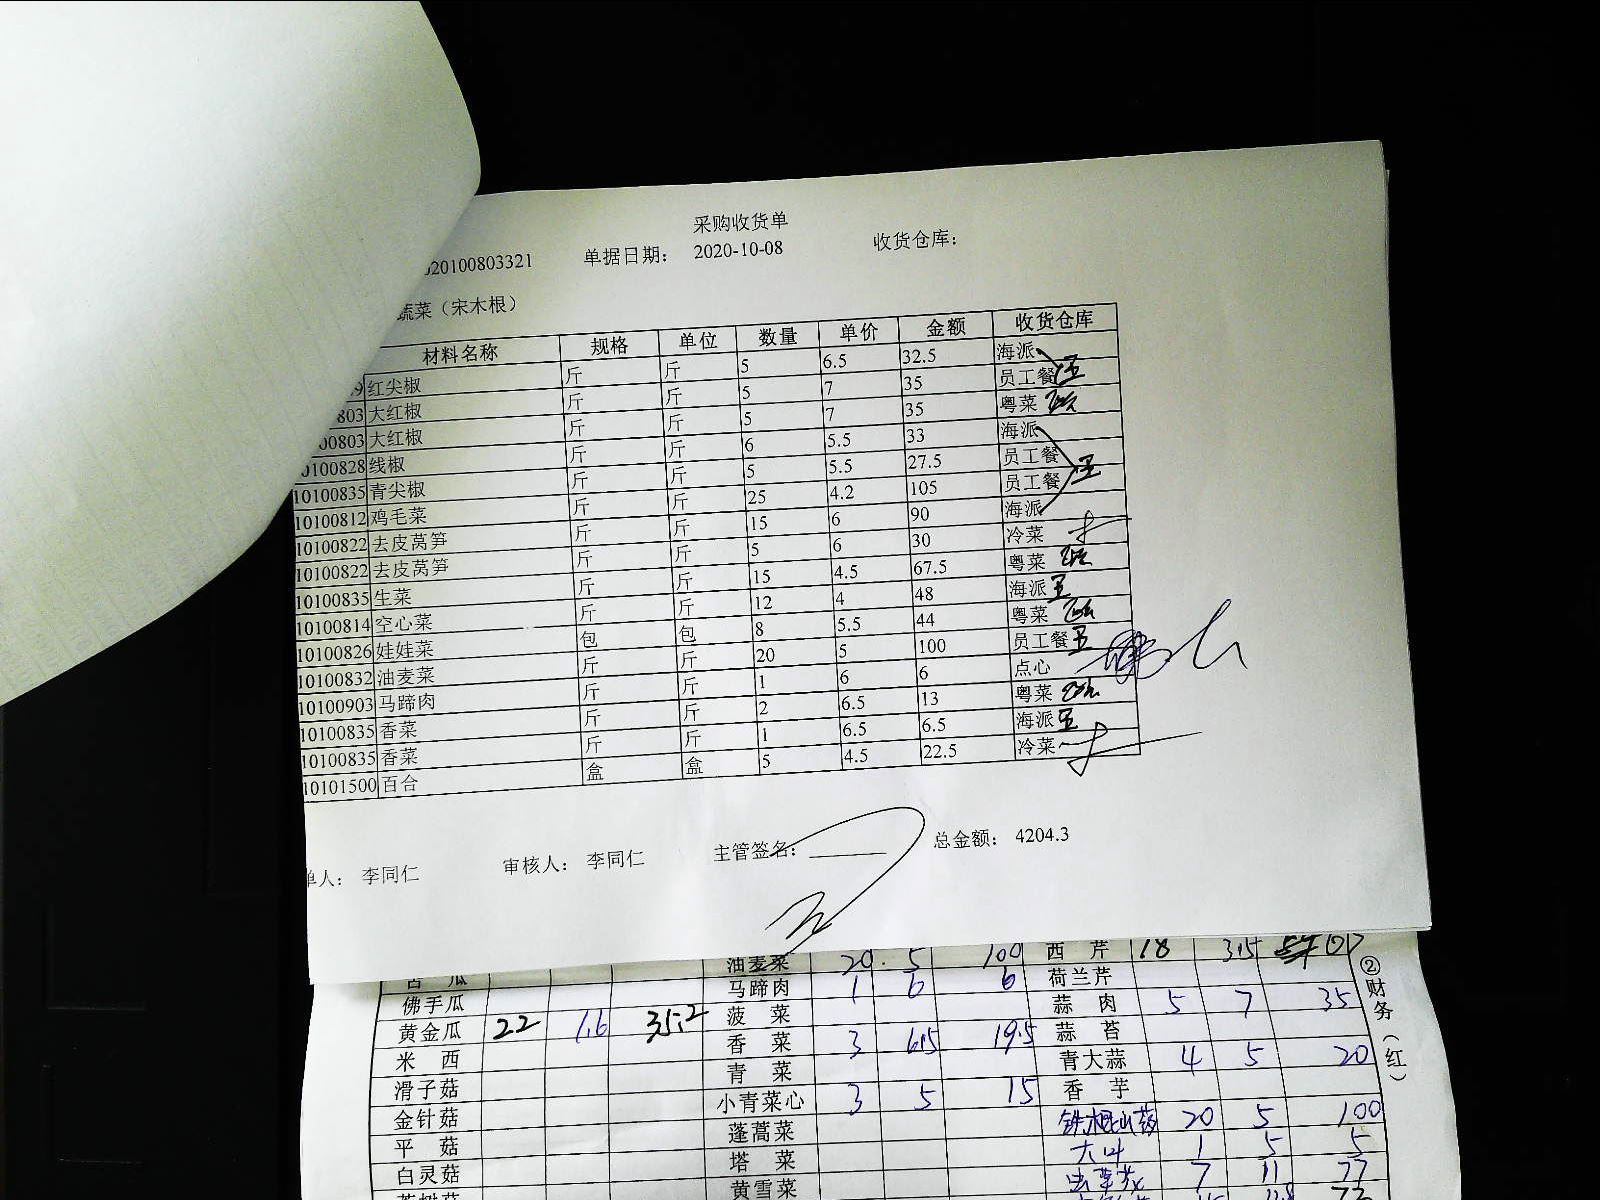 采购收货单
20100803321 单据日期： 2020-10-08 收货仓库：
蔬菜（宋木根）
材料名称 规格 单位 数量 单价 金额 收货仓库
9 红尖椒 斤 斤 5 6.5 32.5 海派
803 大红椒 斤 斤 5 7 35 员工餐
00803 大红椒 斤 斤 5 7 35 粤菜
0100828 线椒 斤 斤 6 5.5 33 海派
10100835 青尖椒 斤 斤 5 5.5 27.5 员工餐
10100812 鸡毛菜 斤 斤 25 4.2 105 员工餐
10100822 去皮莴笋 斤 斤 15 6 90 海派
10100822 去皮莴笋 斤 斤 5 6 30 冷菜
10100835 生菜 斤 斤 15 4.5 67.5 粤菜
10100814 空心菜 斤 斤 12 4 48 海派
10100826 娃娃菜 包 包 8 5.5 44 粤菜
10100832 油麦菜 斤 斤 20 5 100 员工餐
10100903 马蹄肉 斤 斤 1 6 6 点心
10100835 香菜 斤 斤 2 6.5 13 粤菜
10100835 香菜 斤 斤 1 6.5 6.5 海派
10101500 百合 盒 盒 5 4.5 22.5 冷菜
单人： 李同仁 审核人： 李同仁 主管签名： 总金额： 4204.3
苦 瓜 油麦菜 20 5 100 西 芹 18 3.5
佛手瓜 马蹄肉 1 6 6 荷兰芹
黄金瓜 22 1.6 35.2 菠 菜 蒜 肉 5 7 35
米 西 香 菜 3 6.5 19.5 蒜 苔
滑子菇 青 菜 青大蒜 4 5 20
金针菇 小青菜心 3 5 15 香 芋
平 菇 蓬蒿菜 铁棍山药 20 5 100
白灵菇 塔 菜 大叶 1 5 5
茶树菇 黄雪菜 7 11 77
②财务（红）